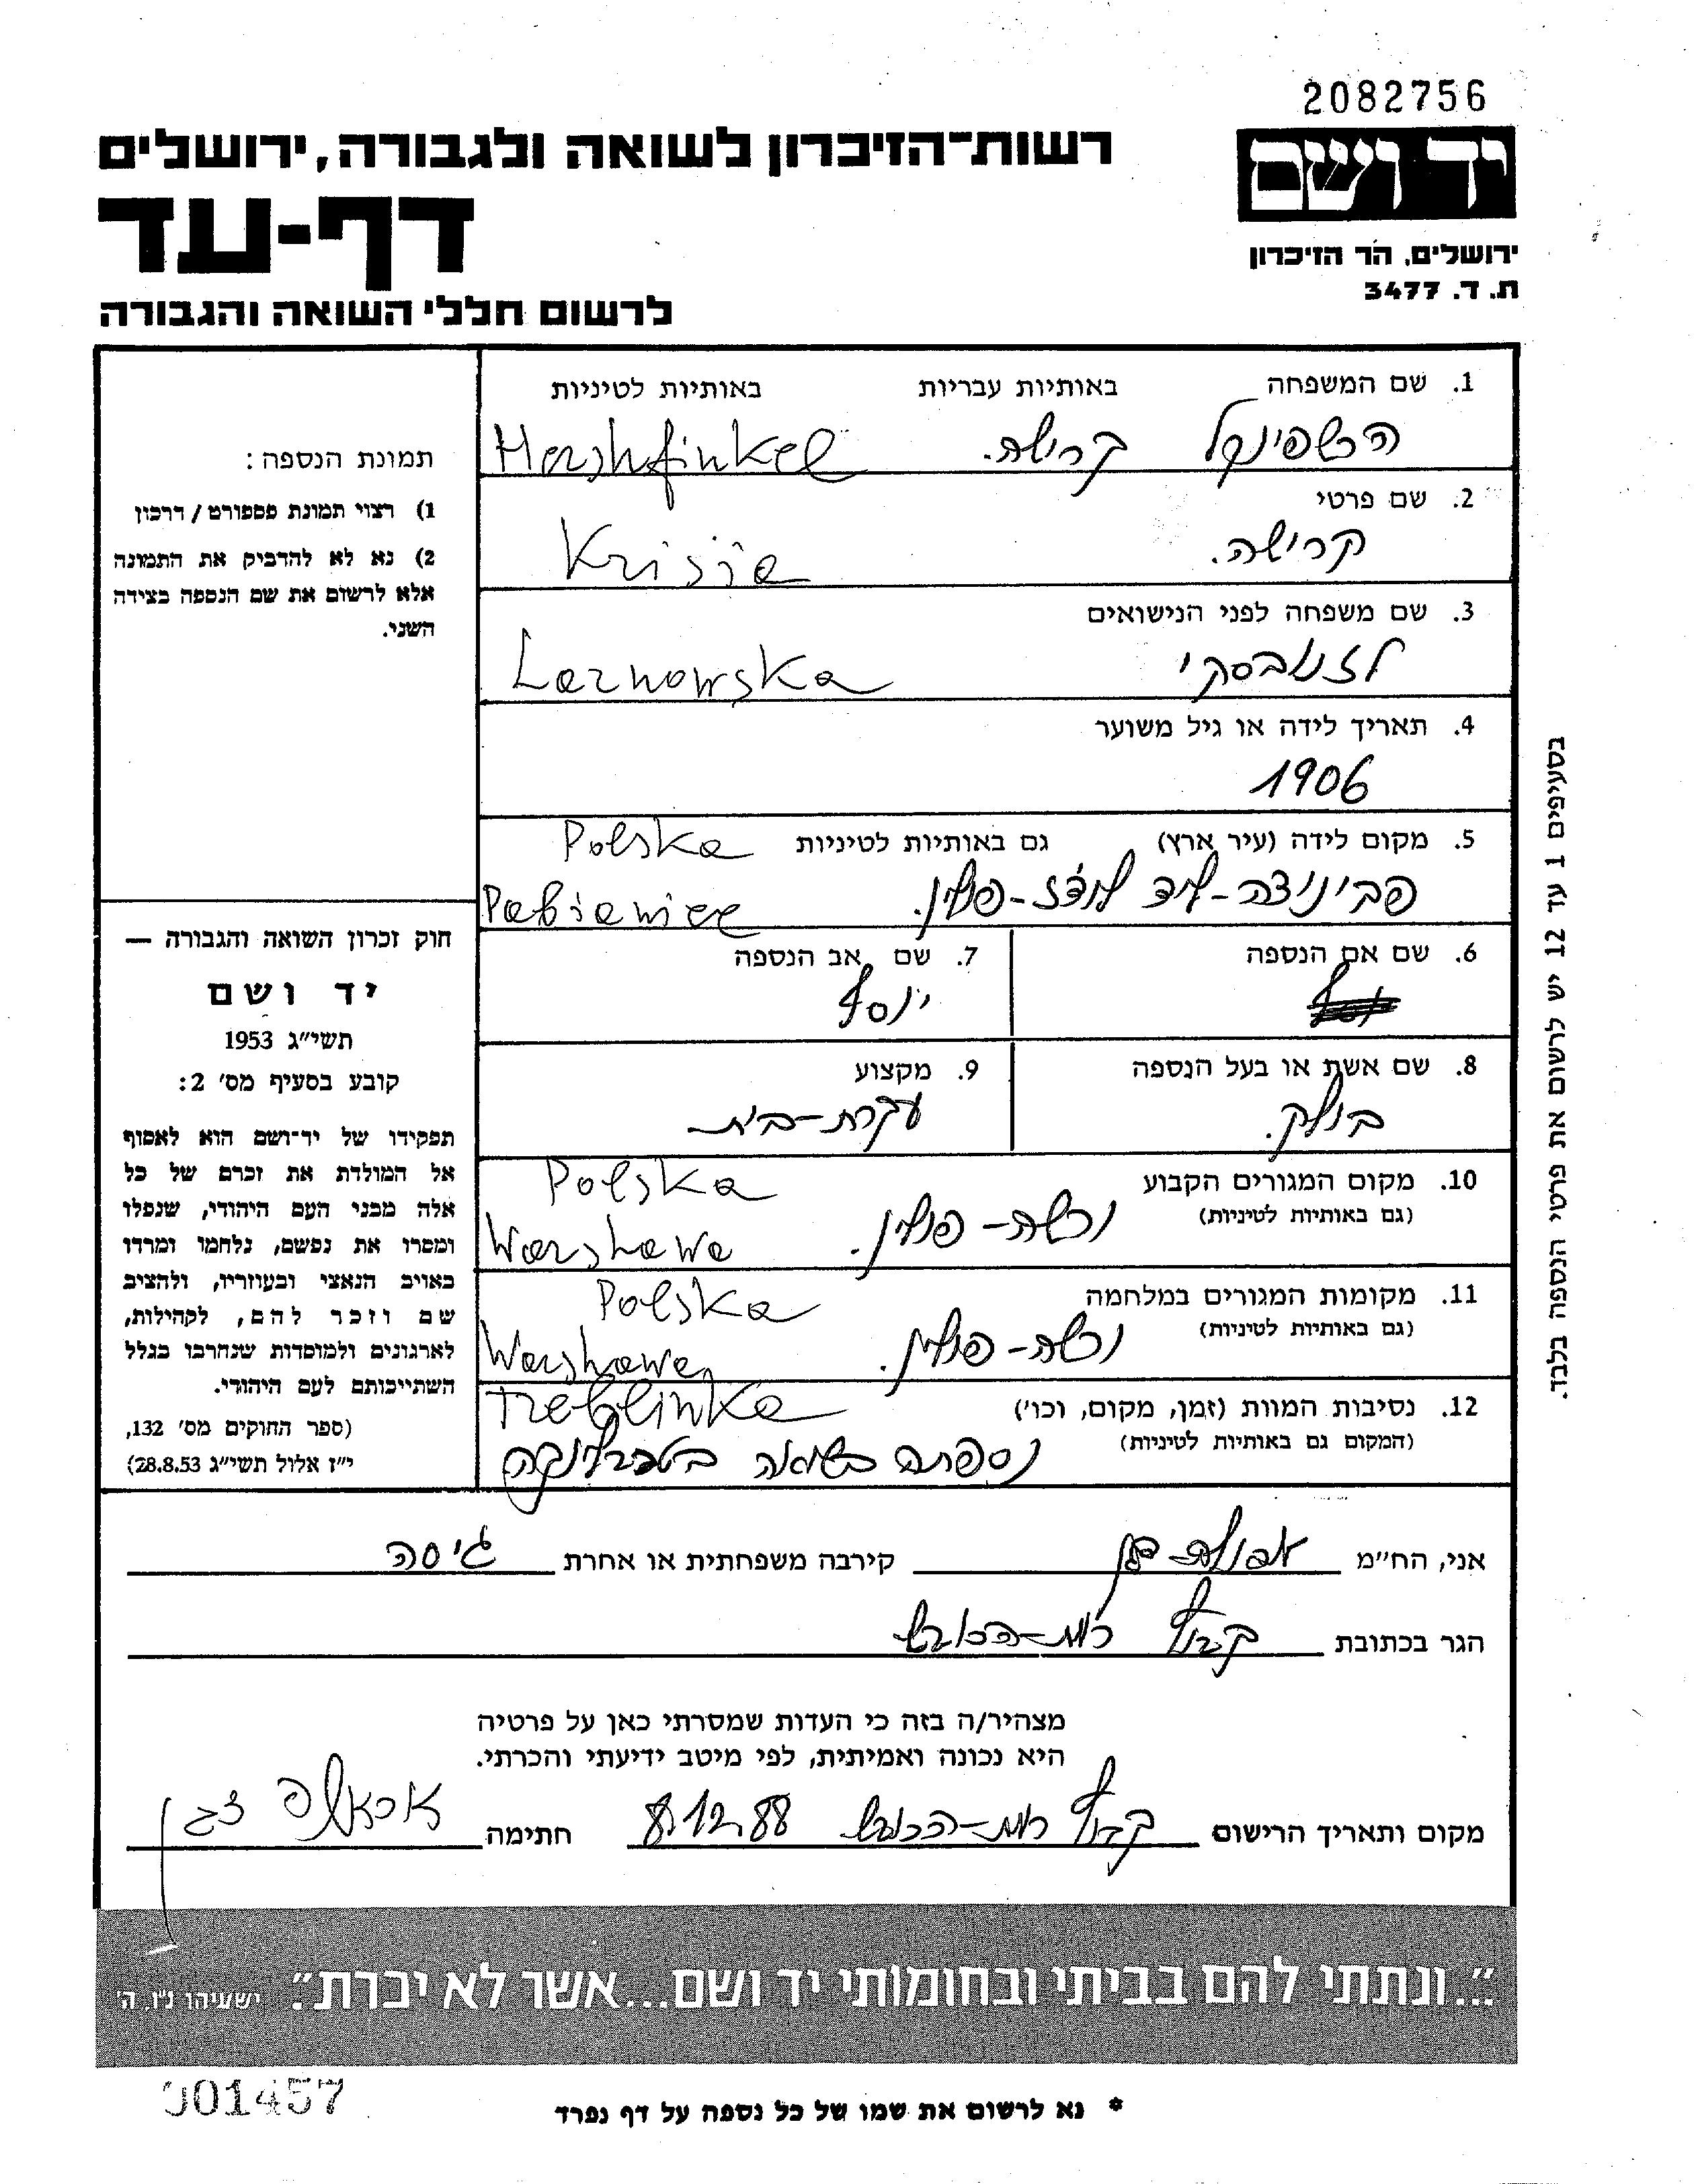 2082756
יד ושם
ירושלים, הר הזיכרון
ת. ד. 3477
רשות־הזיכרון לשואה ולגבורה, ירושלים
דף-עד
לרשום חללי השואה והגבורה
1. שם המשפחה באותיות עבריות באותיות לטיניות
הרשפינקל קרישה. Hershfinkel
2. שם פרטי
קרישה. Krisia
3. שם משפחה לפני הנישואים
לזנובסקי Laznowska
4. תאריך לידה או גיל משוער
1906
5. מקום לידה (עיר ארץ) גם באותיות לטיניות Polska
פביניצה-ליד לודז-פולין. Pabianice
6. שם אם הנספה
7. שם אב הנספה
יוסף
8. שם אשת או בעל הנספה
בולק.
9. מקצוע
עקרת-בית
10. מקום המגורים הקבוע Polska
(גם באותיות לטיניות)
ורשה-פולין. Warshawa
11. מקומות המגורים במלחמה Polska
(גם באותיות לטיניות)
ורשה-פולין. Warshawa
12. נסיבות המוות (זמן, מקום, וכו׳) Treblinka
(המקום גם באותיות לטיניות)
נספתה בשואה בטרבלינקה
תמונת הנספה:
1) רצוי תמונת פספורט / דרכון
2) נא לא להדביק את התמונה
אלא לרשום את שם הנספה בצידה
השני.
חוק זכרון השואה והגבורה —
יד ושם
תשי״ג 1953
קובע בסעיף מס׳ 2:
תפקידו של יד־ושם הוא לאסוף
אל המולדת את זכרם של כל
אלה מבני העם היהודי, שנפלו
ומסרו את נפשם, נלחמו ומרדו
באויב הנאצי ובעוזריו, ולהציב
שם וזכר להם, לקהילות,
לארגונים ולמוסדות שנחרבו בגלל
השתייכותם לעם היהודי.
(ספר החוקים מס׳ 132,
י״ז אלול תשי״ג 28.8.53)
בסעיפים 1 עד 12 יש לרשום את פרטי הנספה בלבד.
אני, הח״מ קירבה משפחתית או אחרת גיסה
הגר בכתובת קבוץ רמת-הכובש
מצהיר/ה בזה כי העדות שמסרתי כאן על פרטיה
היא נכונה ואמיתית, לפי מיטב ידיעתי והכרתי.
מקום ותאריך הרישום קבוץ רמת-הכובש 8.12.88 חתימה
״...ונתתי להם בביתי ובחומותי יד ושם...אשר לא יכרת״. ישעיהו נ״ו, ה׳
001457
* נא לרשום את שמו של כל נספה על דף נפרד